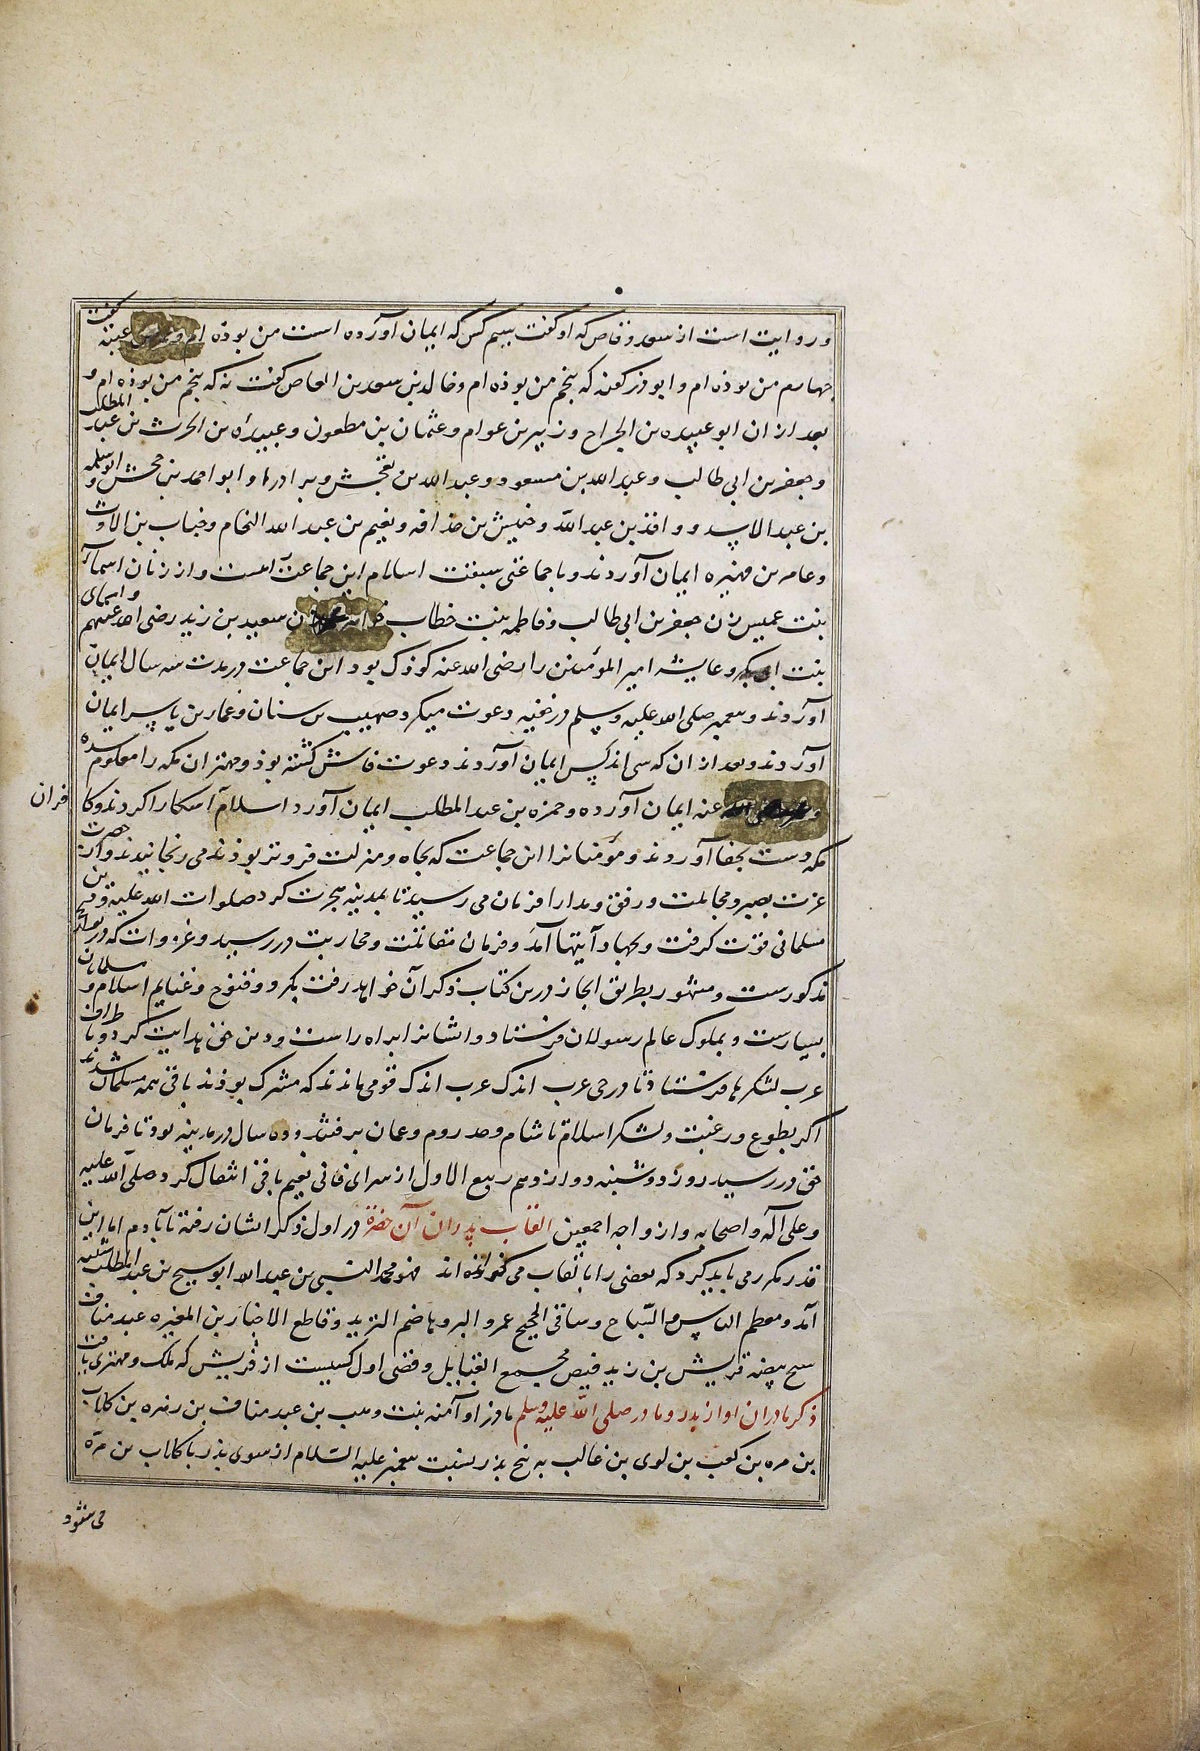 و روایت است از سعد وقاص که او گفت سیم کس که ایمان آورده است من بوذه ام و عتبه گفت
چهارم من بوذه ام و ابو ذر گفت که پنجم من بوذه ام و خالد بن سعد بن العاص گفت نه که پنجم من بوذه ام و
بعد از ان ابو عبیده بن الجراح و زبیر بن عوام و عثمان بن مطعون و عبیده بن الحرث بن عبد المطلب
و جعفر بن ابی طالب و عبد الله بن مسعود و عبد الله بن جحش و برادرها و ابو احمد بن جحش و ابو سلمه
بن عبد الاسد و واقد بن عبد الله و خنیش بن حذافه و نعیم بن عبد الله النحام و خباب بن الارت
و عامر بن فهیره ایمان آوردند و با جماعتی سبقت اسلام این جماعت است و از زنان اسماء
بنت عمیس زن جعفر بن ابی طالب و فاطمه بنت خطاب خواهر زن سعید بن زید رضی الله عنهم و اسمای
بنت ابی بکر و عایشه امیر المؤمنین را رضی الله عنه کوذک بود این جماعت در مدت سه سال ایمان
آوردند و پیغمبر صلی الله علیه وسلم در خفیه دعوت میکرد صهیب بن سنان و عمار بن یاسر ایمان
آوردند و بعد از ان که سی اند کس ایمان آوردند دعوت فاش کشته بوذ و مهتران مکه را معلوم شده
و عنه ایمان آورده و حمزه بن عبد المطلب ایمان آورد اسلام آشکارا کردند و کا
فران
مکه دست بجفا آوردند و مؤمنانرا این جماعت که بجاه و منزلت فروتر بوذند می رنجانیدند و از حضرت
عزت بصبر و مجاملت و رفق و مدارا فرمان می رسید تا بمدینه هجرت کرد صلوات الله علیه و دین
مسلمانی قوت کرفت و بجهاد آیتها آمد و فرمان مقاتلت و محاربت در رسید و غزوات که در
مذکورست و مشهور بطریق ایجاز درین کتاب ذکر آن خواهد رفت بکرد و فتوح و غنایم اسلام و مسلمانان
بسیارست و بملوک عالم رسولان فرستاد و ایشانرا براه راست و دین حق هدایت کرد و با طراف
عرب لشکرها فرستاد تا در حی عرب اندک عرب اندک قومی ماندند که مشرک بوذند باقی همه مسلمان شدند
اکر بطوع و رغبت و لشکر اسلام تا شام و حد روم و عمان برفتند و ده سال در مدینه بود تا فرمان
حق در رسید روز دوشنبه دوازدهم ربیع الاول از سرای فانی بنعیم باقی انتقال کرد صلی الله علیه
و علی آله و اصحابه و ازواجه اجمعین القاب پدران آن حضرة در اول ذکر ایشان رفته تا بآدم اما این
قدر مکرر می باید کرد که بعضی را بالقاب می خوانده اند هو محمد النبی بن عبد الله ابو سیح بن عبد المطلب شیبه
آمد و معظم الناس و السباح و ساقی الحجیج عمرو البر و هاضم الثرید و قاطع الاخبار بن المغیره عبد مناف
سح بیضه قریش بن زید قیص مجمع القبایل و قصی اول کسیست از قریش که ملک و مهتری یافت
ذکر مادران او از پدر و مادر صلی الله علیه وسلم مادر او آمنه بنت وهب بن عبد مناف بن زهره بن کلاب
بن مره بن کعب بن لوی بن غالب به پنج پذر نسبت پیغمبر علیه السلام از سوی پذر با کلاب بن مرة
می شود